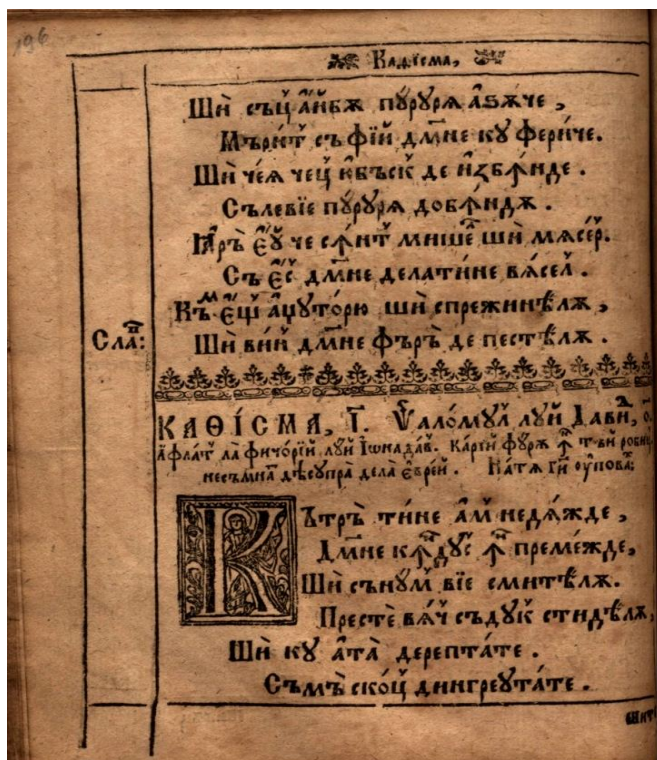 196
Каѳїсма,
Шѝ съц҄ а҆и́бѫ пу́рурѧ а҆ѕѫ́че,
Мърит҄ съ фі́й дм҃не ку фери́че.
Шѝ че́ѧ чец҄ ꙟ҆въск҄ де и҆ꙁбѫ́нде.
Сълевїе пу́рурѧ добѫ́ндѫ.
Ꙗ҆ръ є҆́у че сѫ́нт҄ мише́л҄ шѝ мѧсе́р҄.
Съ є҆́с҄ дм҃не делати́не вѧсел҄.
Къ м є҆щ҄ а҆џуто́рю шѝ спрежинѣ́лѫ,
Сла́в:
Шѝ ві́й дм҃не фъръ де пестѣ́лѫ.
КАѲІ́СМА, І҃. Ѱало́мул҄ лу́й Дави́д, о҃.
а҆флат҄ ла̀ фичо́рїй лу́й І҆ѡнада́в. Ка́рїй фу́рѫ ꙟ҆тъ́й роби́ц
несъмнат҄ дѣсупра̀ дела̀ є҆вре́й. Ка́тѧ гл҃ оу҆пова́:
Кътръ ти́не а҆м҄ недѧ́жде,
Дм҃не кꙟ҆дус҄ ꙟ҆ преме́жде,
Шѝ сънум҄ вїе смитѣ́лѫ.
Престѐ вѧ́ч҄ съдук҄ стидѣ́лѫ,
Шѝ ку а҆та̀ дерепта́те.
Съмъ̀ ско́ц҄ дингреута́те.